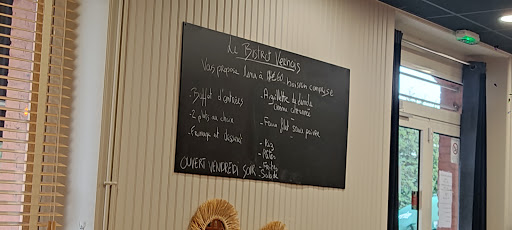 Le Bistrot Vernois
Vous propose menu à 14€60 boisson comprise
Buffet d'entrées
- 2 plats au choix
- Fromage et desserts
- Aiguillette de canard
- Faux filet sauce poivre
- Riz
- Pâtes
- Frites
- Salade
OUVERT VENDREDI SOIR